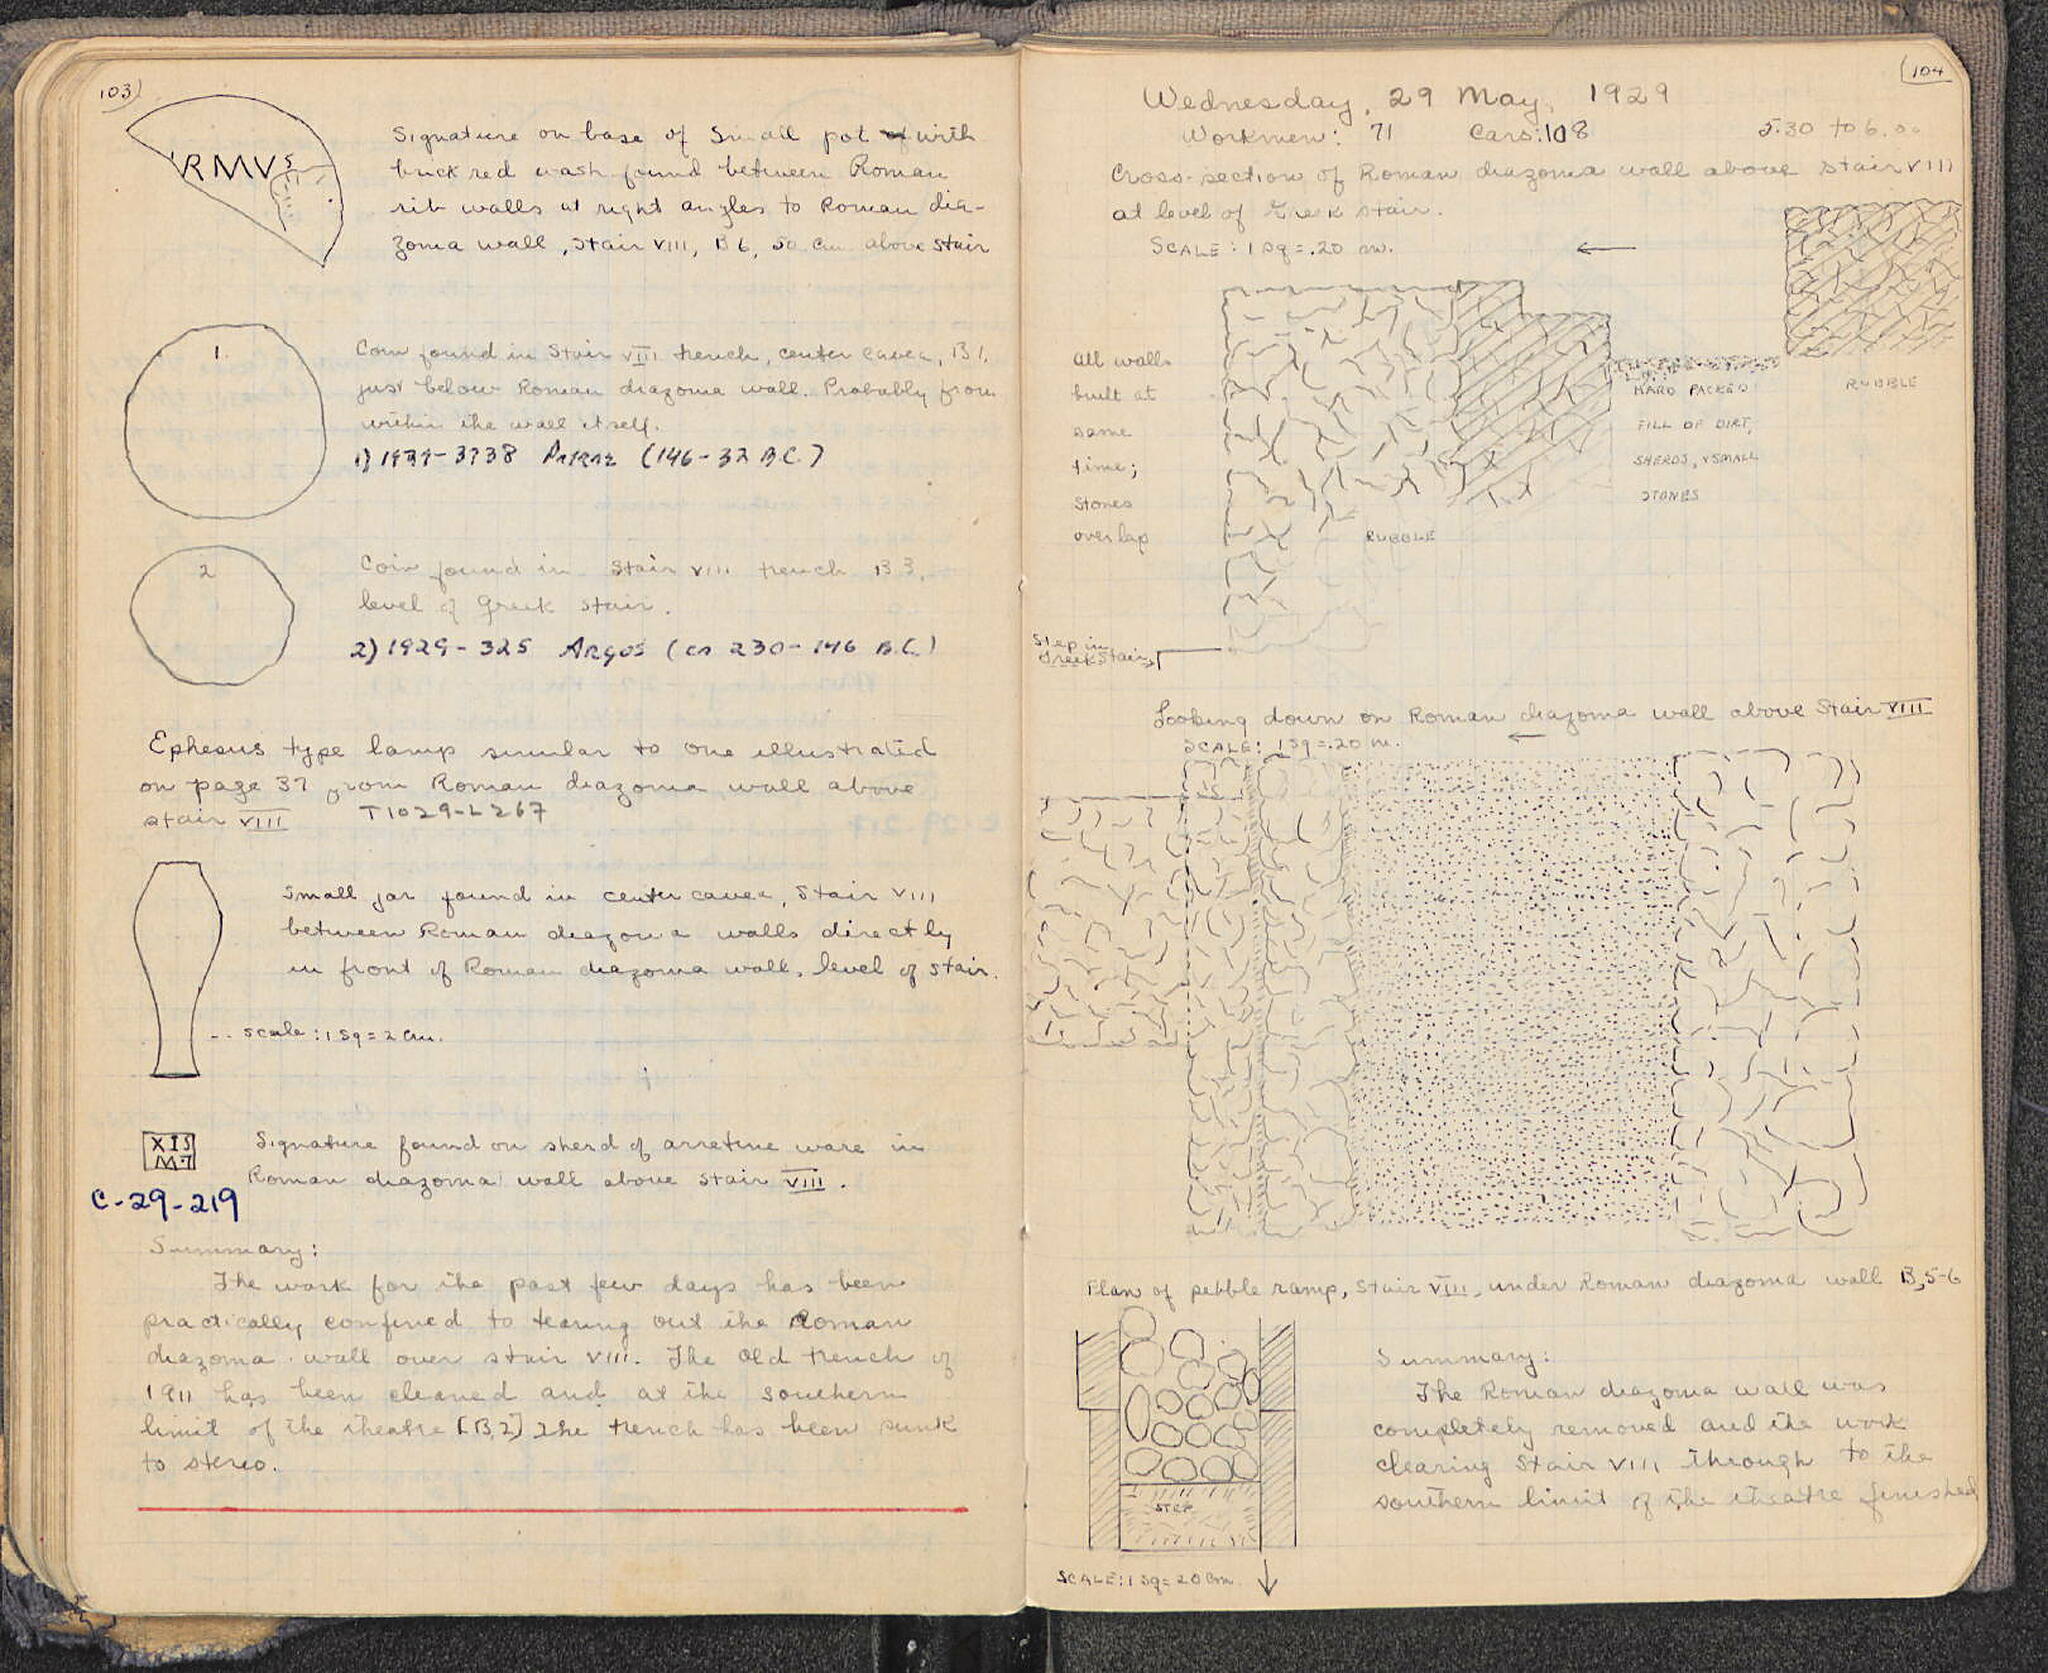 103)
RMVS
Signature on base of small pot with
buck red wash found between Roman
rib walls at right angles to Roman dia-
zoma wall, Stair VIII, B 6, 50 cm above stair
1.
Coin found in Stair VIII trench, center cavea, B 1.
just below Roman diazoma wall. Probably from
within the wall itself.
(146-32 B.C.)
2
Coin found in Stair VIII trench B 3,
level of Greek stair.
2) 1929-325 Argos (ca 230-146 B.C.)
Ephesus type lamp similar to one illustrated
on page 37 from Roman diazoma wall above
stair VIII T1029-L267
Small jar found in center cavea, Stair VIII
between Roman diazoma walls directly
in front of Roman diazoma wall, level of stair.
-- scale: 1 sq = 2 cm.
Signature found on sherd of arretine ware in
Roman diazoma wall above stair VIII.
C-29-219
Summary:
The work for the past few days has been
practically confined to tearing out the Roman
diazoma wall over stair VIII. The old trench of
1911 has been cleaned and at the southern
limit of the theatre [B, 2] the trench has been sunk
to stereo.
(104
Wednesday, 29 May, 1929
Workmen: 71 Cars: 108 5.30 to 6.00
Cross-section of Roman diazoma wall above stair VIII
at level of Greek stair.
SCALE: 1 sq = .20 m.
All walls
built at
same
time;
stones
overlap
HARD PACKED
FILL OF DIRT,
SHERDS, & SMALL
STONES
RUBBLE
RUBBLE
Step in
Greek Stair
Looking down on Roman diazoma wall above Stair VIII
SCALE: 1 sq = .20 m.
Plan of pebble ramp, Stair VIII, under Roman diazoma wall B, 5-6
STEP
SCALE: 1 sq = 20 cm
Summary:
The Roman diazoma wall was
completely removed and the work
clearing Stair VIII through to the
southern limit of the theatre finished